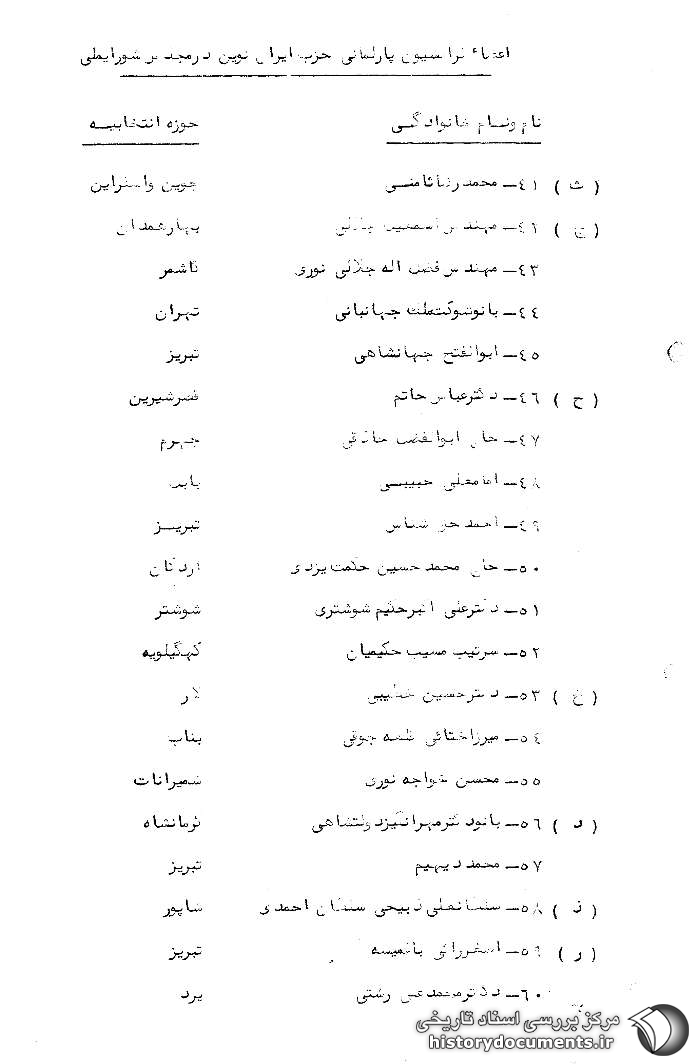 اعضاء فراکسیون پارلمانی حزب ایران نوین در مجلس شورایملی
نام ونام خانوادگی حوزه انتخابیه
( ث ) ٤١ـ محمد رضا ثامنی جوین واسفراین
( ج ) ٤٢ـ مهندس اسمعیل بهار همدان
٤٣ـ مهندس فضل اله جلالی نوری کاشمر
٤٤ـ بانو شوکت ملک جهانبانی تهران
٤٥ـ ابوالفتح جهانشاهی تبریز
( ح ) ٤٦ـ دکتر عباس حاتم قصرشیرین
٤٧ـ حاج ابوالفضل حاذقی جهرم
٤٨ـ امامعلی حبیبی بابل
٤٩ـ احمد حق شناس تبریز
٥٠ـ حاج محمد حسین حکمت یزدی اردکان
٥١ـ دکتر علی اکبر حکیم شوشتری شوشتر
٥٢ـ سرتیپ مسیب حکیمیان کهگیلویه
( خ ) ٥٣ـ دکتر حسین خطیبی لار
٥٤ـ میرزا ختائی قلعه جوقی بناب
٥٥ـ محسن خواجه نوری شمیرانات
( د ) ٥٦ـ بانو دکتر مهرانگیز دولتشاهی کرمانشاه
٥٧ـ محمد دیهیم تبریز
( ذ ) ٥٨ـ ذبیحی احمدی شاپور
( ر ) ٥٩ـ تبریز
٦٠ـ دکتر محمد علی رشتی یزد
مرکز بررسی اسناد تاریخی
historydocuments.ir